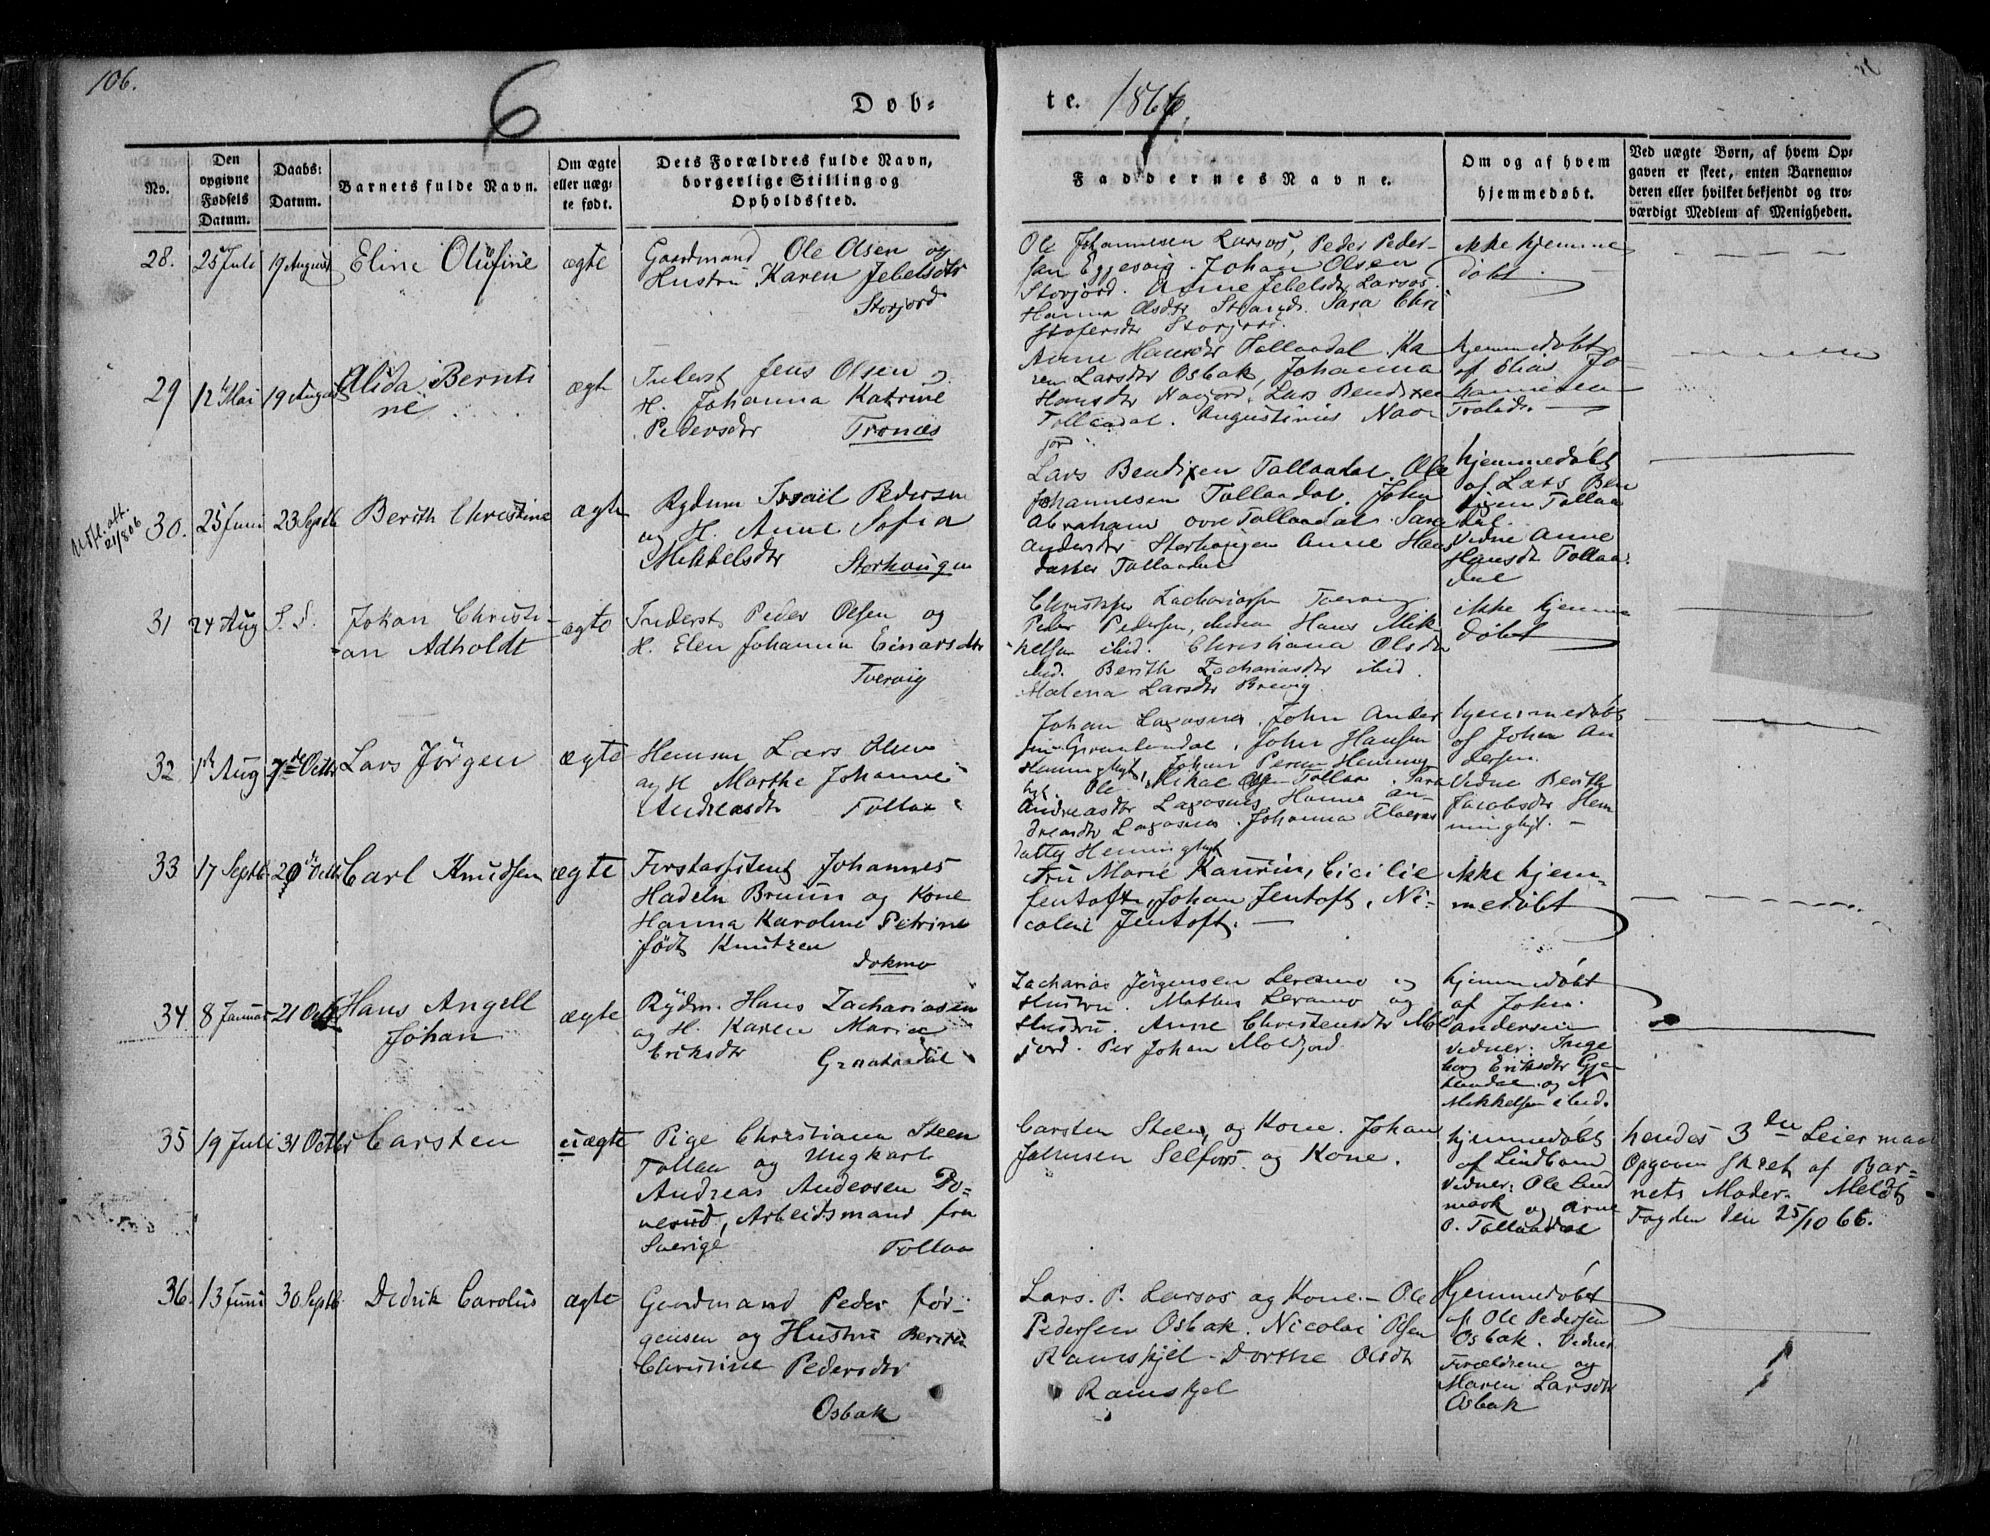 106.
6
Døb-
te. 1866.
No.
Den opgivne Fødsels Datum.
Daabs-Datum.
Barnets fulde Navn.
Om ægte eller uæg-te født.
Dets Forældres fulde Navn, borgerlige Stilling og Opholdssted.
Faddernes Navne.
Om og af hvem hjemmedøbt.
Ved uægte Børn, af hvem Op-gaven er skeet, enten Barnemo-deren eller hvilket bekjendt og tro-værdigt Medlem af Menigheden.
28. 25 Juli 19 August Eline Olufine ægte
Gaardmand Ole Olsen og
Hustru Karen Jebelsdtr
Storjord
Ole Johannesen Larsos, Peder Peder-
sen Eggesvig. Johan Olsen
Storjord. Anne Jebelsdtr Larsos.
Hanna Olsdtr Strand. Sara Chri
stofersdtr Storjord.
ikke hjemme
døbt
29 12 Mai 19 August Alida Bernti
ne
ægte
Inderst Jens Olsen og
H. Johanna Katrine
Pedersdtr Tronæs
Anne Hansdtr Tollaadal. Ka
ren Larsdtr Osbak, Johanna
Hansdtr Navjord. Lars Bendixen
Tollaadal. Augustinus Nav
jor
hjemmedøbt
af Elias Jo-
hannesen
Udfl. att. 21/806
30. 25 Juni 23 Septb Berith Christine ægte
Rydnm Israil Pedersen
og H. Anne Sofia
Mikkelsdtr Storhaugen
Lars Bendixen Tollaadal. Ole
Johannesen Tollaadal. John
Abraham. øvre Tollaadal. Sara
Andersdtr Storhaugen Anne Hans
datter Tollaadal
hjemmedøbt
af Lars Ben
dixen Tollaa
dal.
Vidne Anne
Hansdt Tollaa-
dal
31 24 Aug S. D. Johan Christi-
an Adholdt
ægte
Inderst Peder Olsen og
H. Elen Johanna Einarsdtr
Tvervig
Christopher Zachariassen Tvervig
Peder Pedersen, Hans Mik
kelsen ibid. Christiana Olsdtr
ibid. Berith Zachariasdtr ibid.
Malena Larsdtr Brevig.
ikke hjemme
døbt
32. 1 Aug 7de Octbr Lars Jørgen ægte
Hemsm Lars Olsen
og H Marthe Johanne
Andreasdtr Tollaa
Johan Lagosnes. John Ander
sen Grønlendal. John Hansen
Hemmingshyt, Johan Hemming
hyt. Ole Mikal Olsen Tollaa. Sara
Andreasdtr Lagosnes Hanna An-
dreasdtr Lagosnes. Johanna
datter Hemminghyt
hjemmedøbt
af John An
dersen.
Vidne Berith
Jacobsdtr Hem
minghyt. -
33 17 Septb 20de Octb Carl Knudsen ægte
Forstassistent Johannes
Hadeln Bruun og Kone
Hanna Karoline Petrine
født Knutzen
Dokmo
Fru Marie Kaurin, Cicilie
Jentoft, Johan Jentoft, Ni-
colai Jentoft. -
ikke hjem-
medøbt
34. 8 Januar 21 Octb Hans Angell
Johan
ægte
Rydm. Hans Zachariasen
og H. Karen Maria
Eriksdtr
Graataadal
Zacharias Jørgensen Leramo og
Hustru. Mathis Leramo og
Hustru. Anne Christensdtr Mol
jord. Per Johan Moldjord
hjemmedøbt
af John.
Andersen
Vidner. Inge
borg Eriksdtr
og N
Mikkelsen ibid.
35 19 Juli 31 Octbr Carsten uægte
Pige Christiana Steen
Tollaa og Ungkarl
Andreas Andersen Do-
nerud, Arbeidsmand fra
Sverige Tollaa
Carsten Steen, og Kone. Johan
Johnsen Selfors og Kone.
hjemmedøbt
af Lindban
Vidner: Ole Lind
mark og Arne
O. Tollaadal
hendes 3die Leiermaal
Opgaven skeet af Bar-
nets Moder. Meldt
Fogden den 25/10 66.
36. 13 Juni 30 Septb. Didrik Carolus ægte
Gaardmand Peder Jør-
gensen og Hustru Berith
Christine Pedersdtr
Osbak
Lars. P. Larsos og Kone. - Ole
Pedersen Osbak. Nicolai Olsen
Ramskjel - Dorthe Olsdtr
Ramskjel
Hjemmedøbt
af Ole Pedersen
Osbak. Vidner
Forældrene og
Maren Larsdtr
Osbak